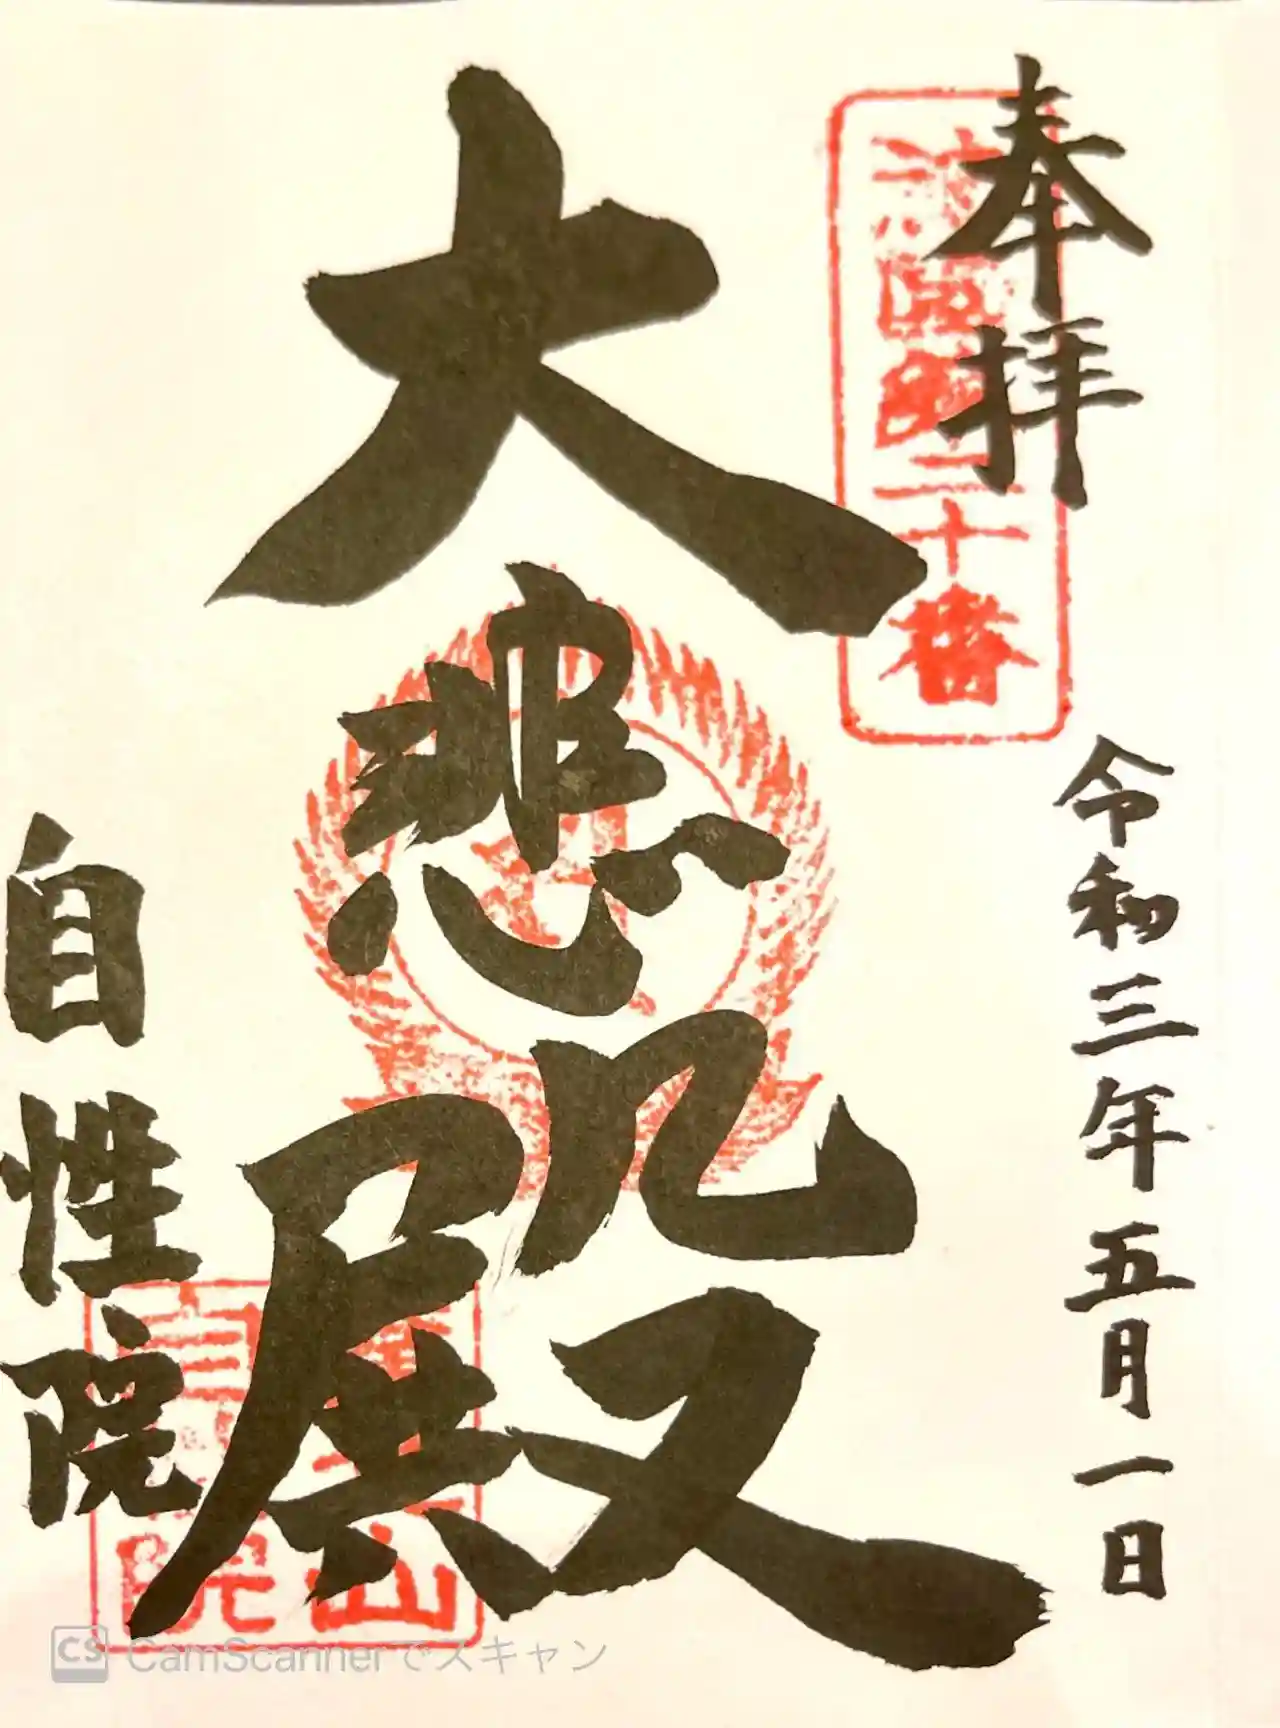 奉拝
二十番
令和三年五月一日
大悲殿
自性院
山
院
CS CamScannerでスキャン